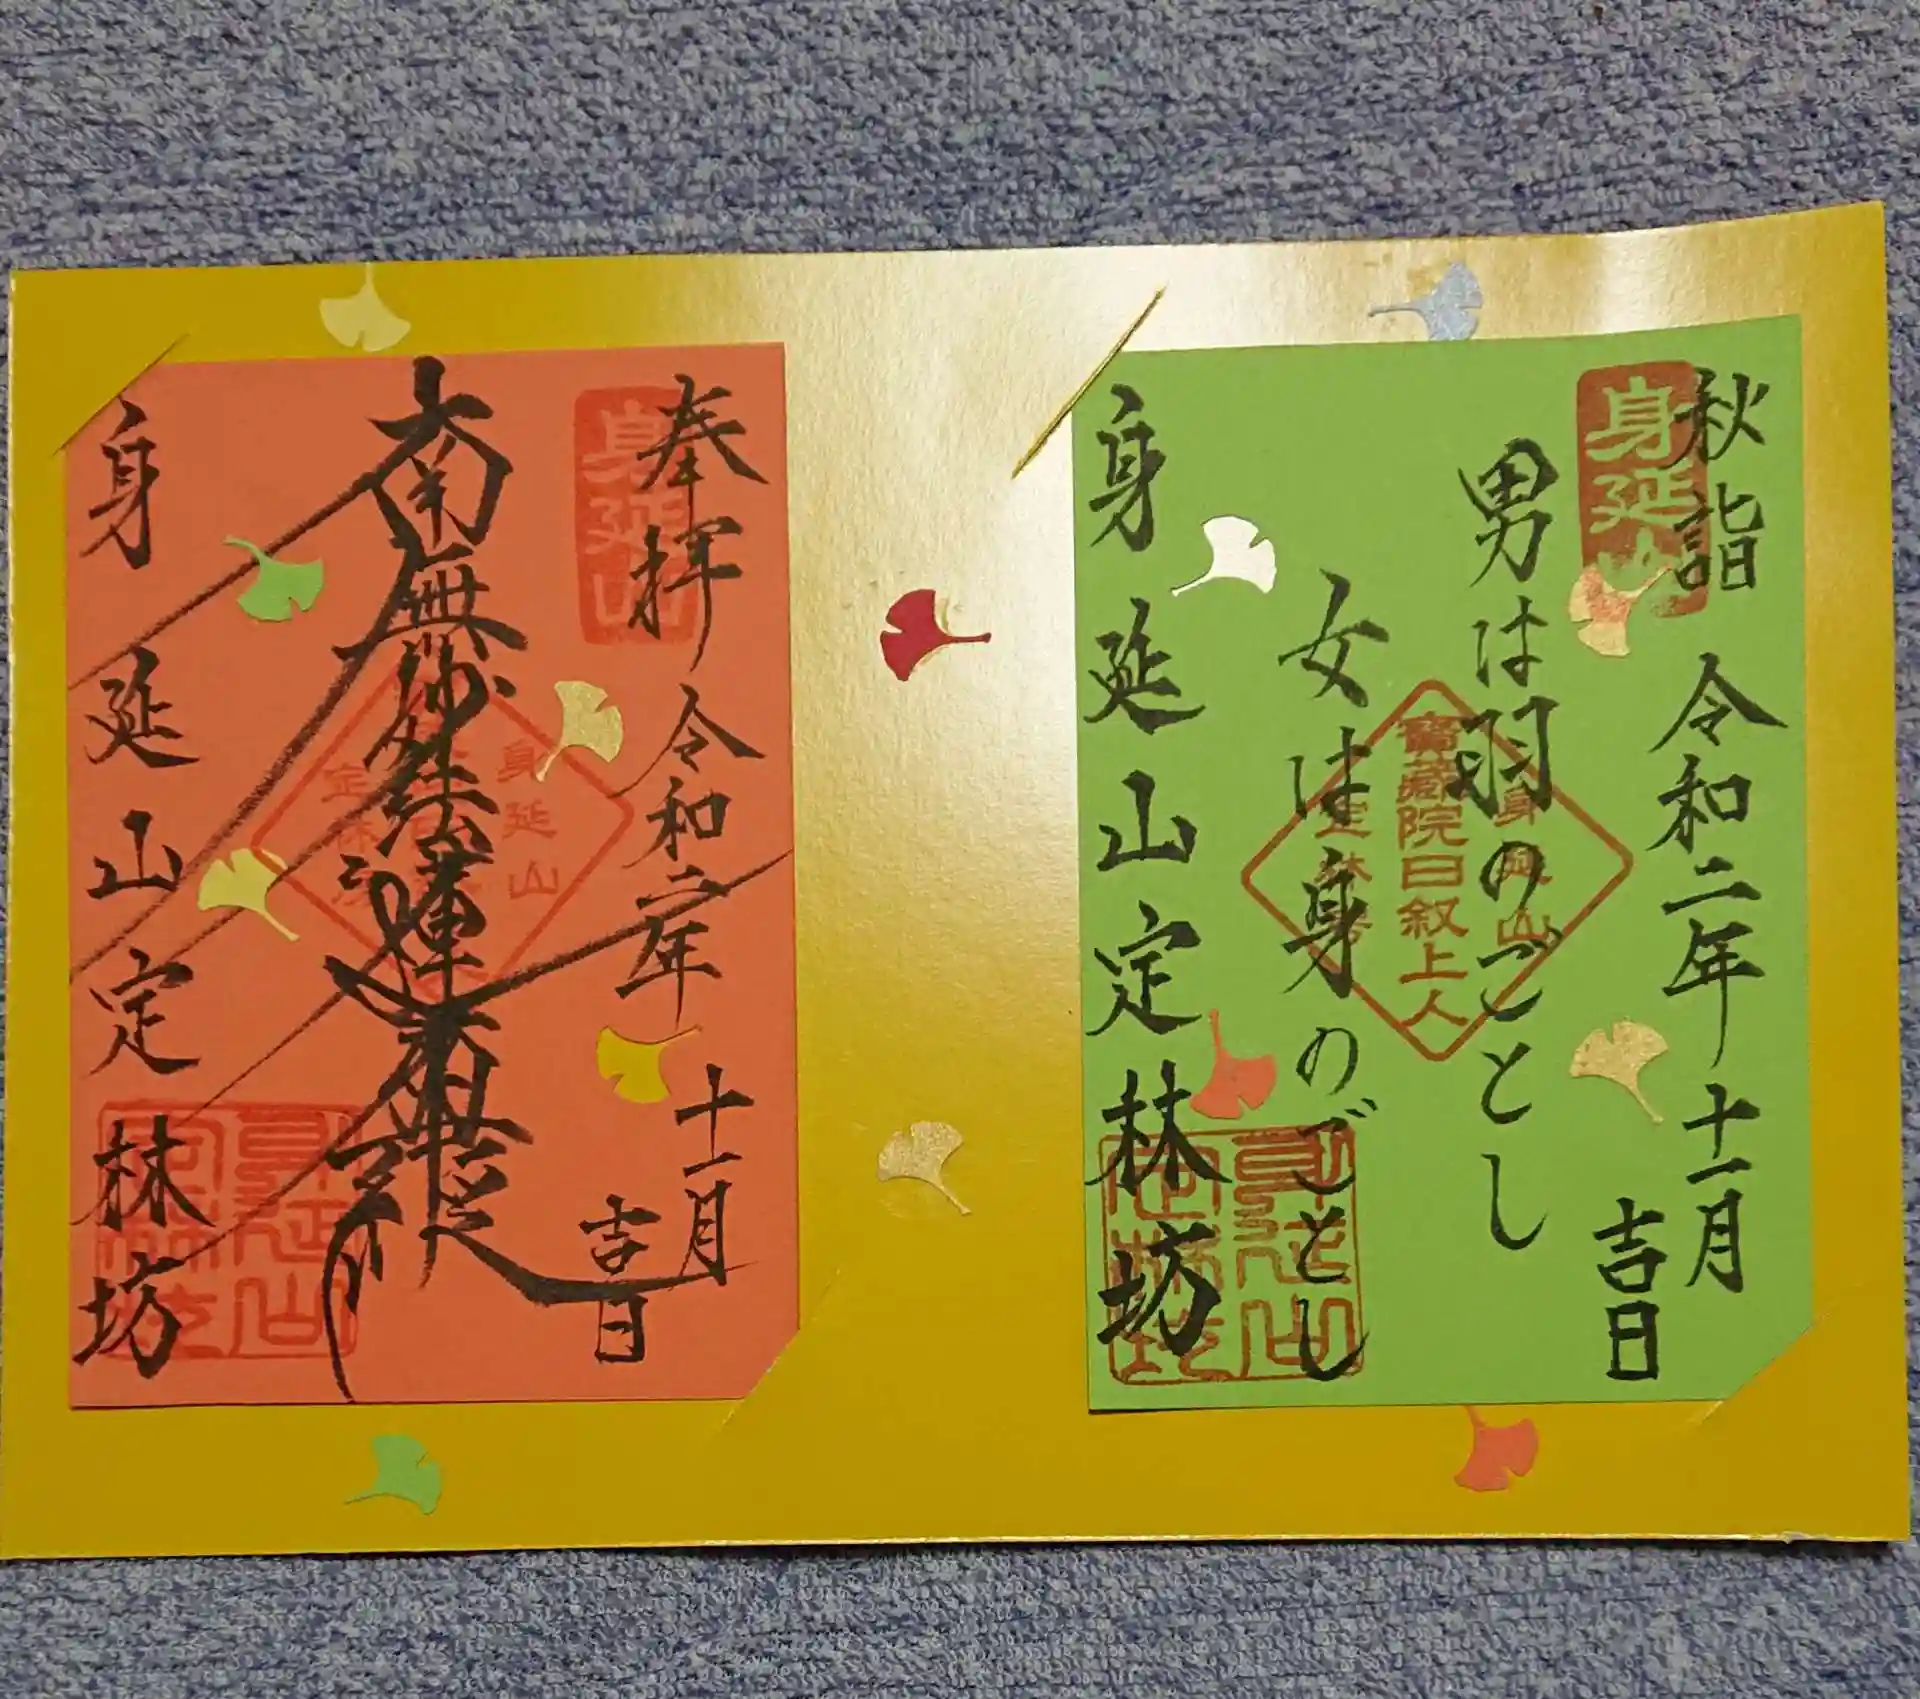 秋詣 令和二年十一月吉日
身延山
男は羽のごとし
女は身のごとし
身延山
寶蔵院日叙上人
定林坊
身延山定林坊
奉拝 令和二年十一月吉日
身延山
南無妙法蓮華経
身延山
定林坊
身延山定林坊